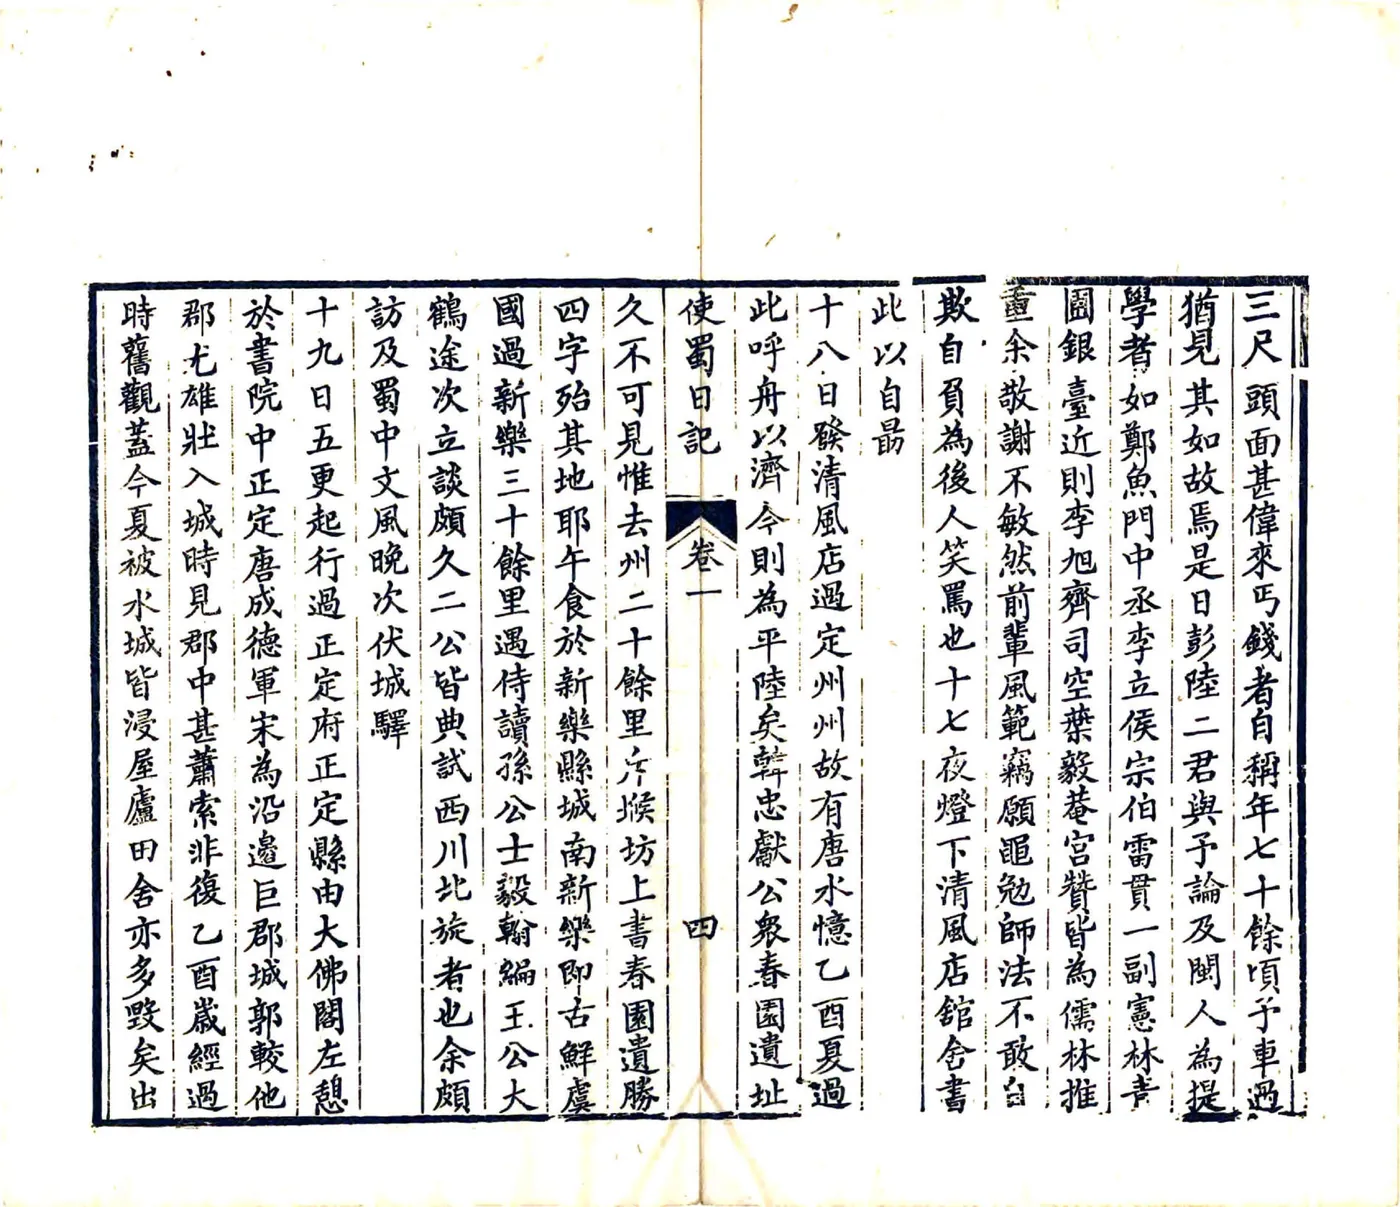 三尺頭面甚偉來丐錢者自稱年七十餘頃予車過
猶見其如故焉是日彭陸二君與予論及閩人為提
學者如鄭魚門中丞李立侯宗伯雷貫一副憲林青
圃銀臺近則李旭齊司空葉毅菴宮贊皆為儒林推
重余敬謝不敏然前輩風範竊願黽勉師法不敢自
欺自負為後人笑罵也十七夜燈下清風店舘舍書
此以自勗
十八日發清風店過定州州故有唐水憶乙酉夏過
此呼舟以濟今則為平陸矣韓忠獻公衆春園遺址
使蜀日記
卷一
四
久不可見惟去州二十餘里斥堠坊上書春園遺勝
四字殆其地耶午食於新樂縣城南新樂即古鮮虞
國過新樂三十餘里遇侍讀孫公士毅翰編王公大
鶴途次立談頗久二公皆典試西川北旋者也余頗
訪及蜀中文風晚次伏城驛
十九日五更起行過正定府正定縣由大佛閣左憩
於書院中正定唐成德軍宋為沿邊巨郡城郭較他
郡尤雄壯入城時見郡中甚蕭索非復乙酉歲經過
時舊觀蓋今夏被水城皆浸屋廬田舍亦多毀矣出